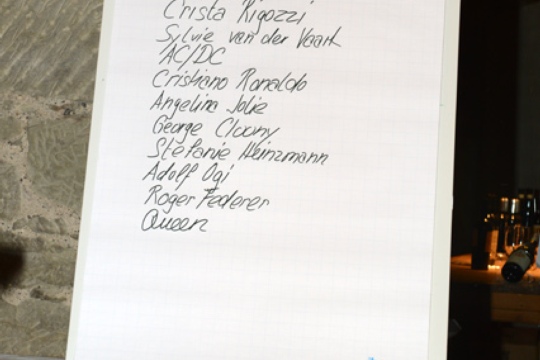 Crista Rigozzi
Sylvie van der Vaart
AC/DC
Cristiano Ronaldo
Angelina Jolie
George Cloony
Stefanie Heinzmann
Adolf Ogi
Roger Federer
Queen